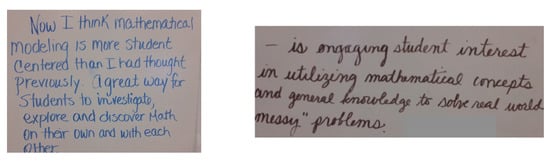 Now I think mathematical
modeling is more student
centered than I had thought
previously. A great way for
students to investigate,
explore and discover Math
on their own and with each
other
– is engaging student interest
in utilizing mathematical concepts
and general knowledge to solve real world
messy" problems.